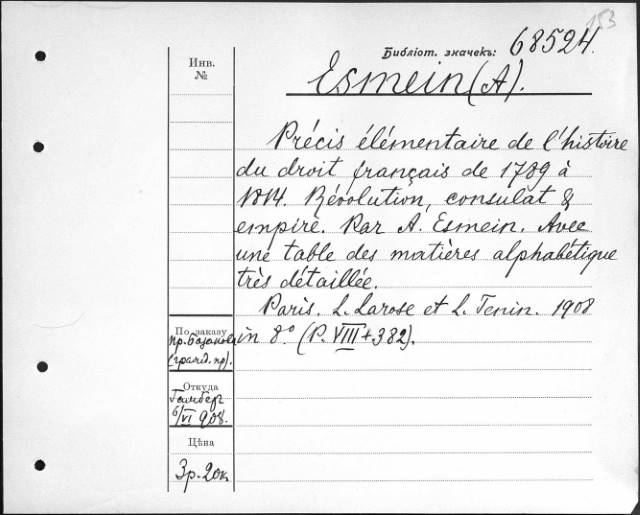 153
Библіот. значекъ: 68524.
Инв.
№
Esmein (A).
Précis élémentaire de l'histoire
du droit français de 1789 à
1814. Révolution, consulat &
empire. Par A. Esmein. Avec
une table des matières alphabétique
très détaillée.
Paris. L. Larose et L. Tenin. 1908
in 8.º (P. VIII + 382).
По заказу
пр.
(гражд. пр).
Откуда
Гамбер
6/VI 908.
Цѣна
3р. 20к.